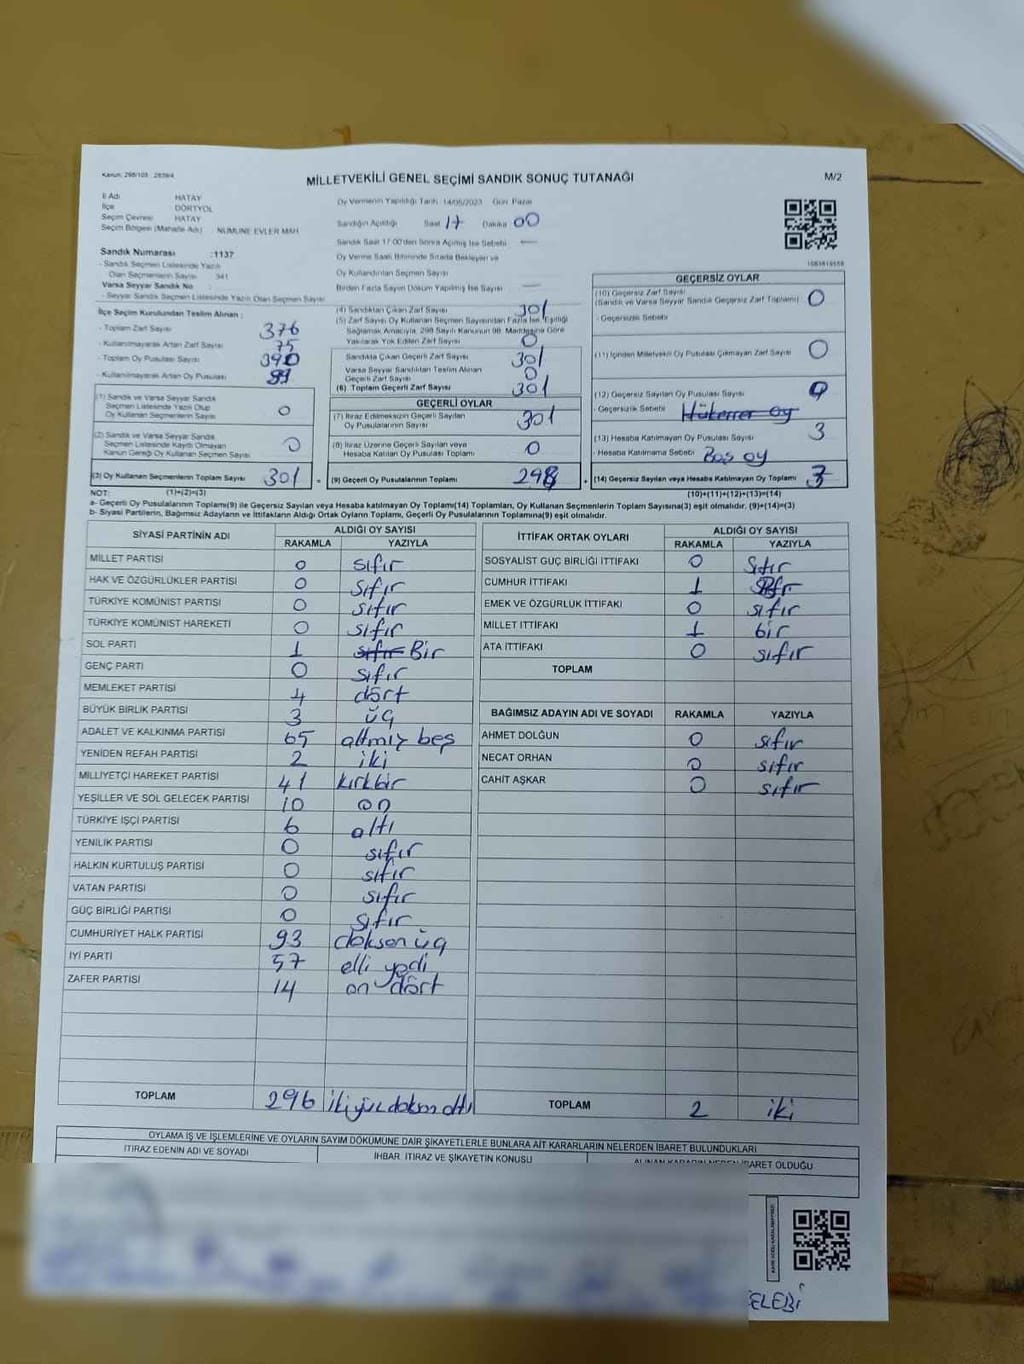 Kanun: 298/105 : 2839/4
MİLLETVEKİLİ GENEL SEÇİMİ SANDIK SONUÇ TUTANAĞI
M/2
İl Adı HATAY
İlçe DÖRTYOL
Seçim Çevresi HATAY
Seçim Bölgesi (Mahalle Adı) : NUMUNE EVLER MAH
Oy Vermenin Yapıldığı Tarih: 14/05/2023 Gün: Pazar
Sandığın Açıldığı Saat 17 Dakika 00
Sandık Saat 17:00'den Sonra Açılmış İse Sebebi —
Oy Verme Saati Bitiminde Sırada Bekleyen ve
Oy Kullandırılan Seçmen Sayısı
Birden Fazla Sayım Döküm Yapılmış İse Sayısı —
Sandık Numarası :1137
- Sandık Seçmen Listesinde Yazılı
Olan Seçmenlerin Sayısı 341
Varsa Seyyar Sandık No :
- Seyyar Sandık Seçmen Listesinde Yazılı Olan Seçmen Sayısı
İlçe Seçim Kurulundan Teslim Alınan :
- Toplam Zarf Sayısı 376
- Kullanılmayarak Artan Zarf Sayısı 75
- Toplam Oy Pusulası Sayısı 390
- Kullanılmayarak Artan Oy Pusulası
(1) Sandık ve Varsa Seyyar Sandık
Seçmen Listesinde Yazılı Olup
Oy Kullanan Seçmenlerin Sayısı 0
(2) Sandık ve Varsa Seyyar Sandık
Seçmen Listesinde Kayıtlı Olmayan
Kanun Gereği Oy Kullanan Seçmen Sayısı 0
(3) Oy Kullanan Seçmenlerin Toplam Sayısı 301
(4) Sandıktan Çıkan Zarf Sayısı 301
(5) Zarf Sayısı Oy Kullanan Seçmen Sayısından Fazla İse, Eşitliği
Sağlamak Amacıyla, 298 Sayılı Kanunun 98. Maddesine Göre
Yakılarak Yok Edilen Zarf Sayısı 0
Sandıkta Çıkan Geçerli Zarf Sayısı 301
Varsa Seyyar Sandıktan Teslim Alınan
Geçerli Zarf Sayısı 0
(6) Toplam Geçerli Zarf Sayısı 301
GEÇERLİ OYLAR
(7) İtiraz Edilmeksizin Geçerli Sayılan
Oy Pusulalarının Sayısı 301
(8) İtiraz Üzerine Geçerli Sayılan veya
Hesaba Katılan Oy Pusulası Toplamı 0
(9) Geçerli Oy Pusulalarının Toplamı 298
GEÇERSİZ OYLAR
(10) Geçersiz Zarf Sayısı
(Sandık ve Varsa Seyyar Sandık Geçersiz Zarf Toplamı) 0
- Geçersizlik Sebebi
(11) İçinden Milletvekili Oy Pusulası Çıkmayan Zarf Sayısı 0
(12) Geçersiz Sayılan Oy Pusulası Sayısı
- Geçersizlik Sebebi Mükerrer oy
(13) Hesaba Katılmayan Oy Pusulası Sayısı 3
- Hesaba Katılmama Sebebi Boş oy
(14) Geçersiz Sayılan veya Hesaba Katılmayan Oy Toplamı 3
NOT: (1)+(2)=(3)
(10)+(11)+(12)+(13)=(14)
a- Geçerli Oy Pusulaları Toplamı(9) ile Geçersiz Sayılan veya Hesaba katılmayan Oy Toplamı(14) Toplamları, Oy Kullanan Seçmenlerin Toplam Sayısına(3) eşit olmalıdır. (9)+(14)=(3)
b- Siyasi Partilerin, Bağımsız Adayların ve İttifakların Aldığı Ortak Oyların Toplamı, Geçerli Oy Pusulalarının Toplamına(9) eşit olmalıdır.
SİYASİ PARTİNİN ADI ALDIĞI OY SAYISI
RAKAMLA YAZIYLA
MİLLET PARTİSİ 0 sıfır
HAK VE ÖZGÜRLÜKLER PARTİSİ 0 sıfır
TÜRKİYE KOMÜNİST PARTİSİ 0 sıfır
TÜRKİYE KOMÜNİST HAREKETİ 0 sıfır
SOL PARTİ 1 sıfır Bir
GENÇ PARTİ 0 sıfır
MEMLEKET PARTİSİ 4 dört
BÜYÜK BİRLİK PARTİSİ 3 üç
ADALET VE KALKINMA PARTİSİ 65 altmış beş
YENİDEN REFAH PARTİSİ 2 iki
MİLLİYETÇİ HAREKET PARTİSİ 41 kırkbir
YEŞİLLER VE SOL GELECEK PARTİSİ 10 on
TÜRKİYE İŞÇİ PARTİSİ 6 altı
YENİLİK PARTİSİ 0 sıfır
HALKIN KURTULUŞ PARTİSİ 0 sıfır
VATAN PARTİSİ 0 sıfır
GÜÇ BİRLİĞİ PARTİSİ 0 sıfır
CUMHURİYET HALK PARTİSİ 93 doksan üç
İYİ PARTİ 57 elli yedi
ZAFER PARTİSİ 14 on dört
TOPLAM 296 ikiyüz doksan altı
İTTİFAK ORTAK OYLARI ALDIĞI OY SAYISI
RAKAMLA YAZIYLA
SOSYALİST GÜÇ BİRLİĞİ İTTİFAKI 0 sıfır
CUMHUR İTTİFAKI 1
EMEK VE ÖZGÜRLÜK İTTİFAKI 0 sıfır
MİLLET İTTİFAKI 1 bir
ATA İTTİFAKI 0 sıfır
TOPLAM
BAĞIMSIZ ADAYIN ADI VE SOYADI RAKAMLA YAZIYLA
AHMET DOLĞUN 0 sıfır
NECAT ORHAN 0 sıfır
CAHİT AŞKAR 0 sıfır
TOPLAM 2 iki
OYLAMA İŞ VE İŞLEMLERİNE VE OYLARIN SAYIM DÖKÜMÜNE DAİR ŞİKAYETLERLE BUNLARA AİT KARARLARIN NELERDEN İBARET BULUNDUKLARI
İTİRAZ EDENİN ADI VE SOYADI İHBAR, İTİRAZ VE ŞİKAYETİN KONUSU ALINAN KARARIN NEDEN İBARET OLDUĞU
ELEBİ